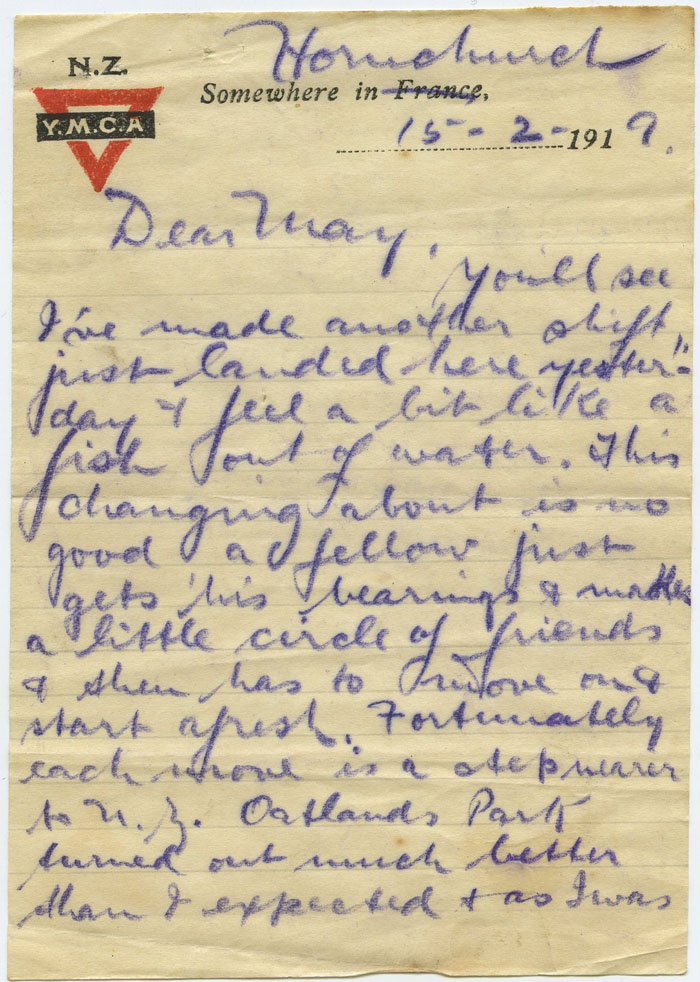 N.Z.
Y.M.C.A
Hornchurch
Somewhere in France,
15 - 2 - 1919.
Dear May,
You'll see
I've made another shift,
just landed here yester-
day & feel a bit like a
fish out of water. This
changing about is no
good a fellow just
gets his bearings & makes
a little circle of friends
& then has to move on &
start afresh. Fortunately
each move is a step nearer
to N.Z. Oatlands Park
turned out much better
than I expected & as I was